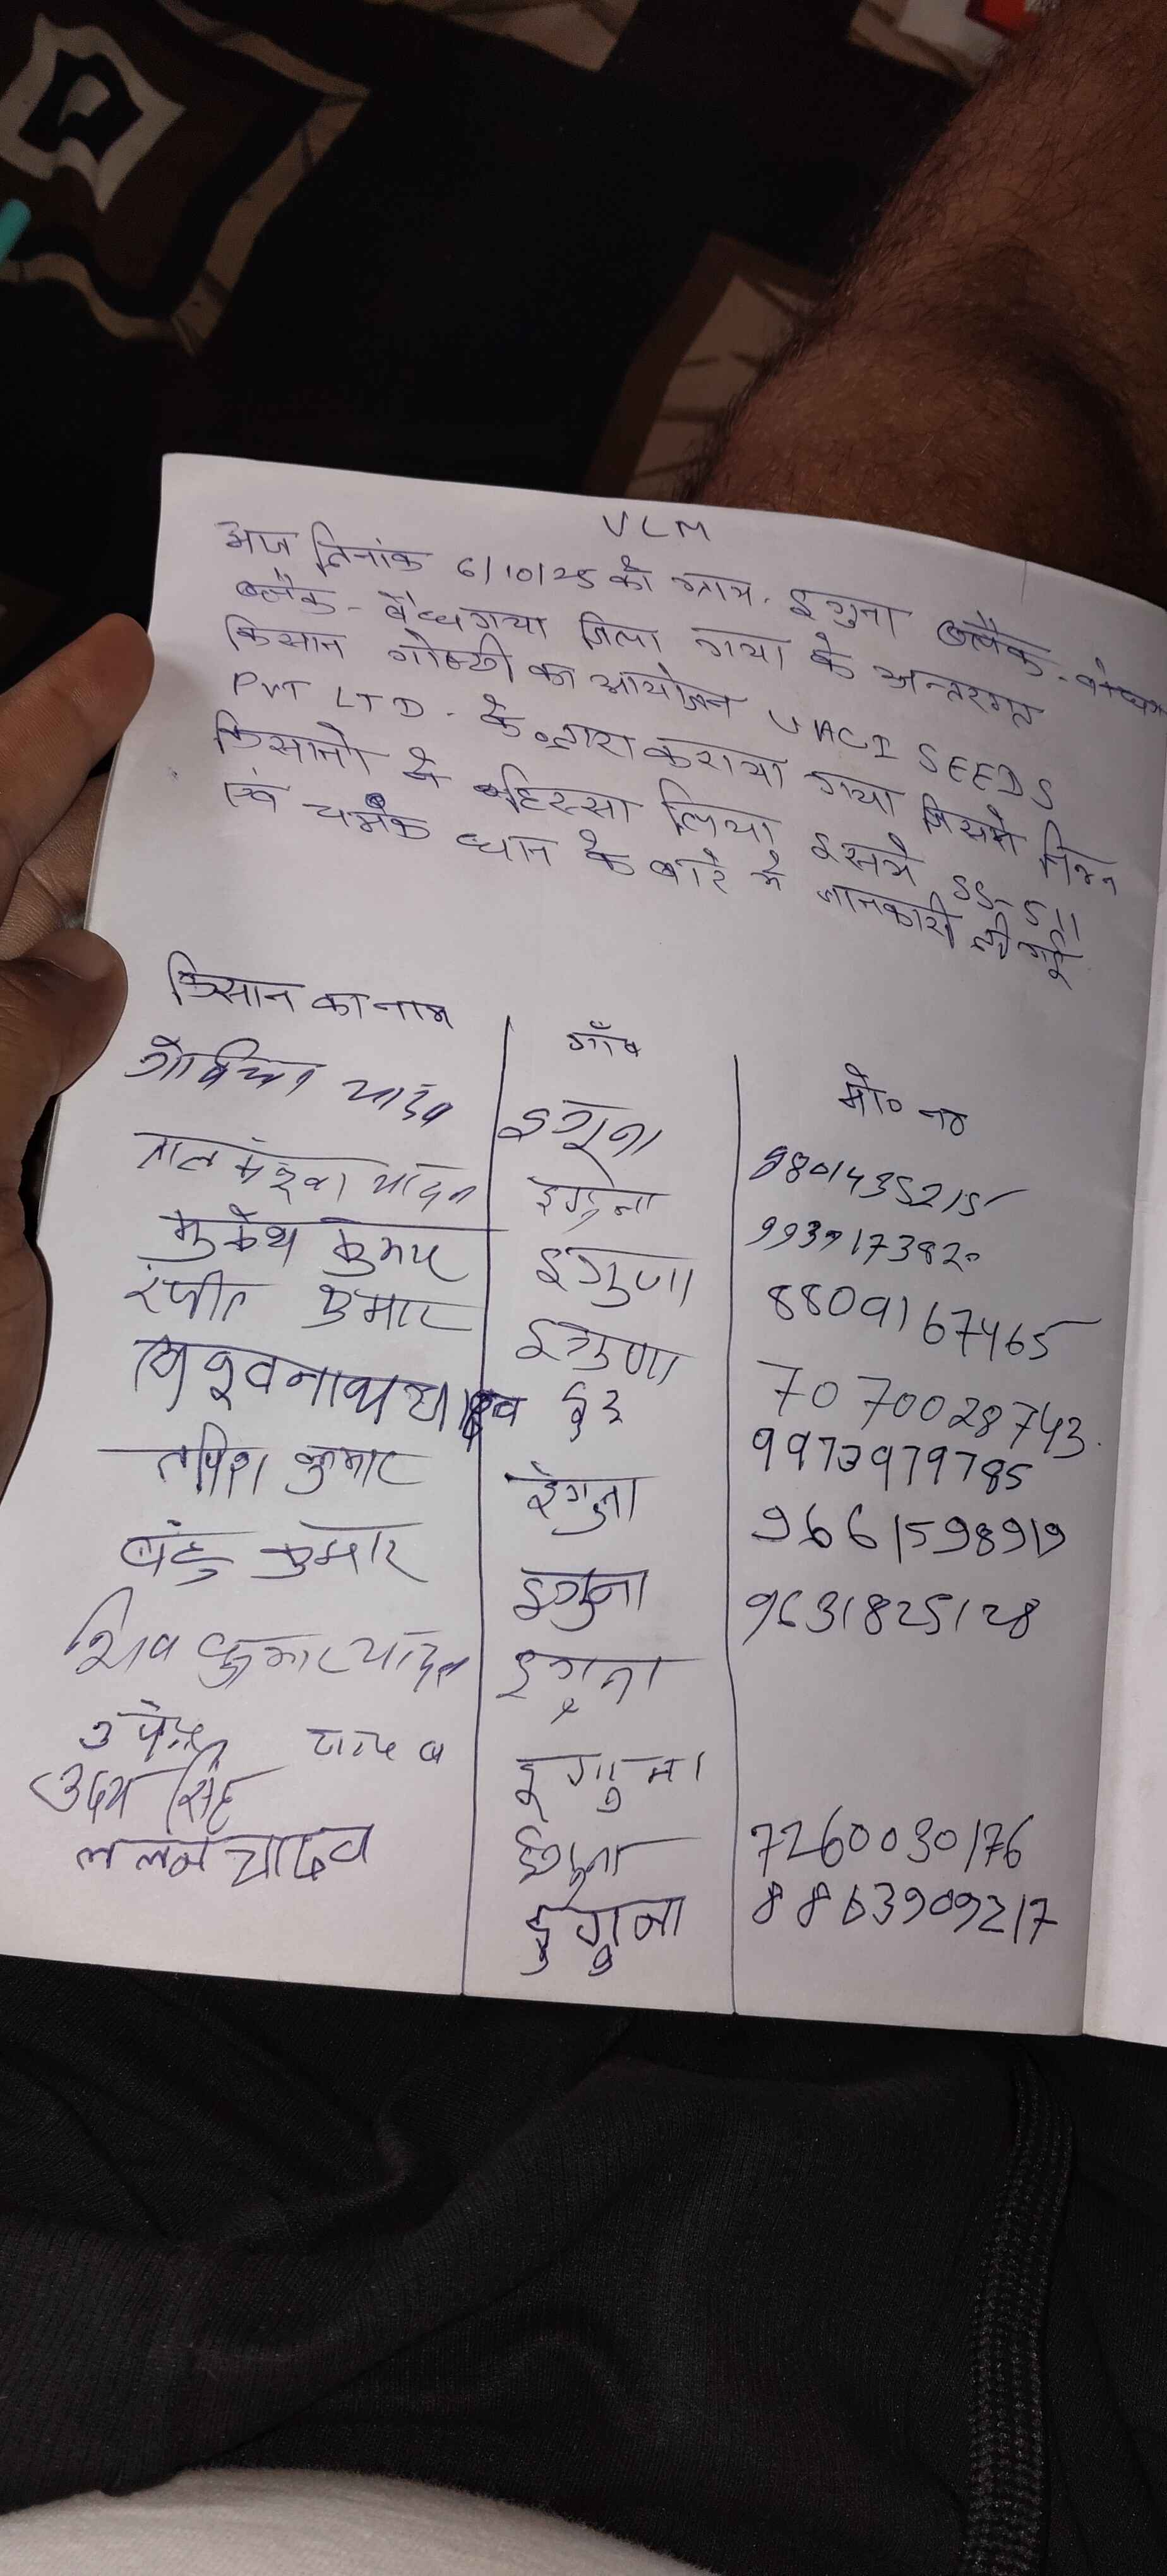 VLM
आज दिनांक 6/10/25 को ग्राम. इगुना
ब्लौक - बोधगया जिला गया के अन्तरगत
किसान गोष्ठी का आयोजन SEEDS
PVT LTD. के द्वारा कराया गया जिसमे निम्न
किसानो ने हिस्सा लिया इसमे SS-511
एवं चमक धान के बारे मे जानकारी दी गई
किसान का नाम गाँव मो० न०
यादव इगुना 8801435215
यादव इगुना 9939173820
मुकेश कुमार इगुणा 8809167465
रंजीत कुमार इगुणा 7070028743
यादव 9973979785
कुमार इगुना 9661598919
कुमार इगुना 9631825128
शिव कुमार यादव इगुना
यादव इगुना
उदय सिंह इगुना 7260030176
ललन यादव इगुना 8863909217